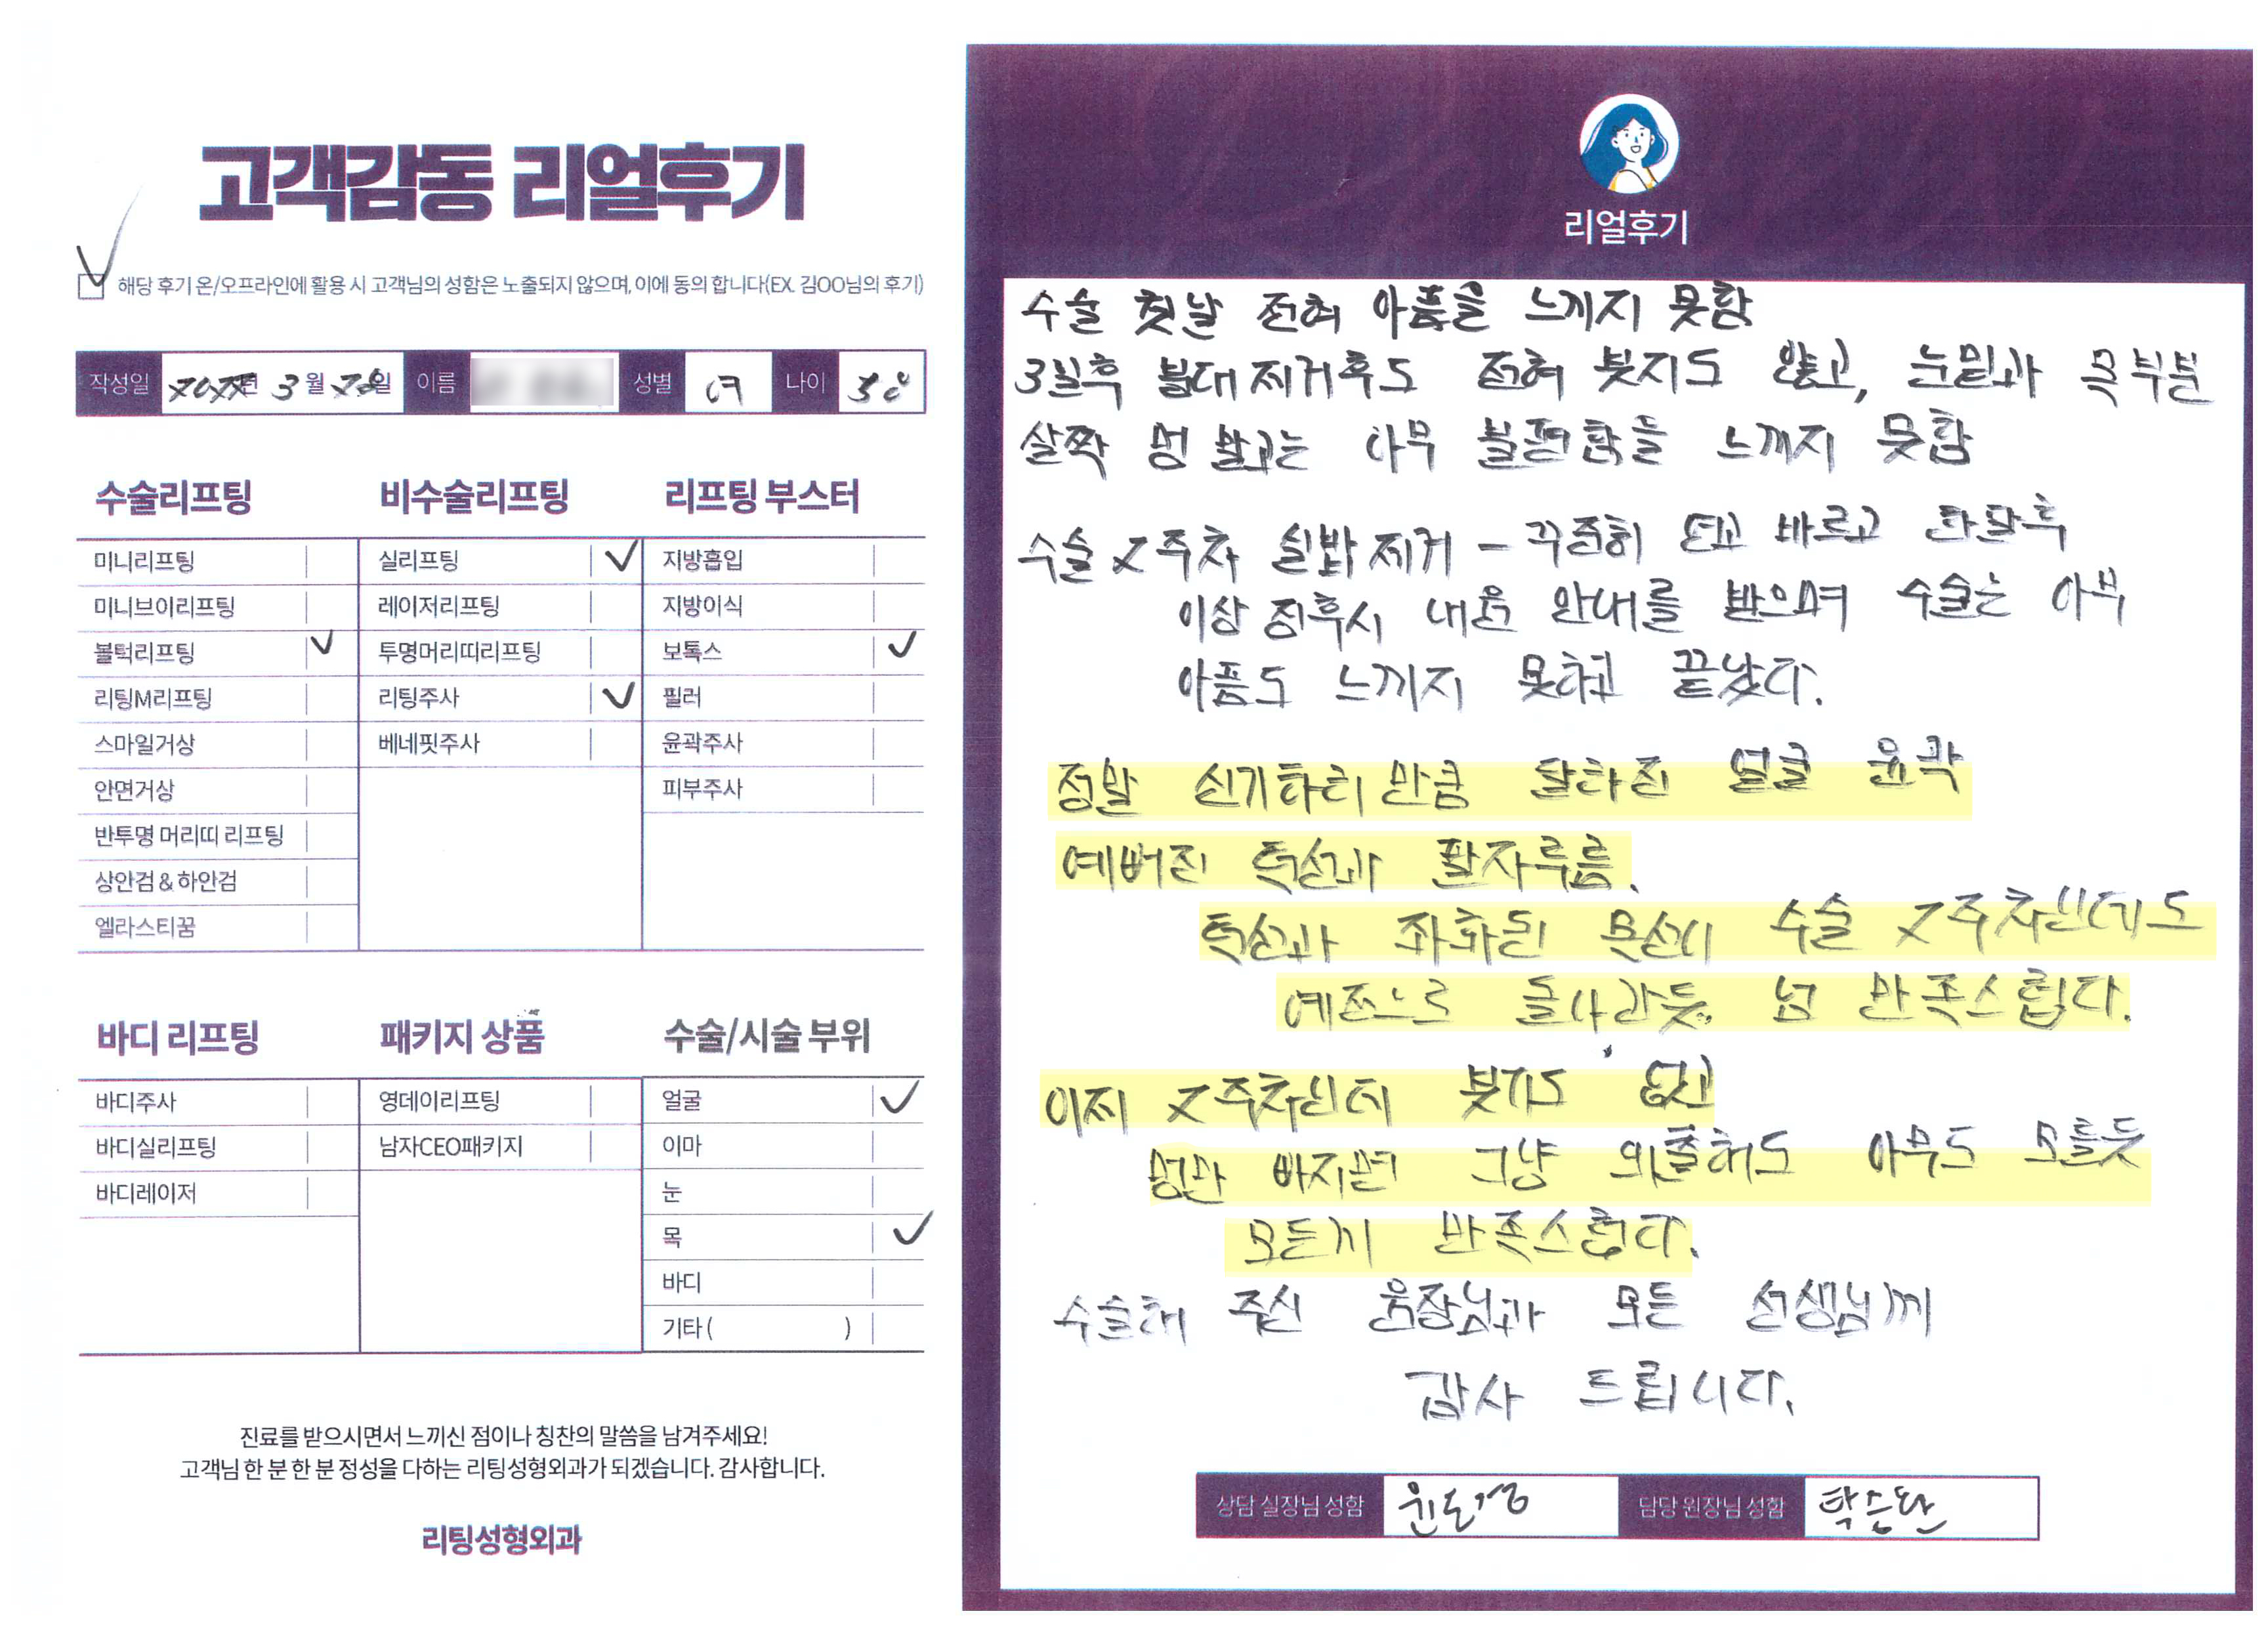 고객감동 리얼후기
해당 후기 온/오프라인에 활용 시 고객님의 성함은 노출되지 않으며, 이에 동의 합니다(EX. 김OO님의 후기)
작성일 년 3월 일 이름 성별 여 나이
수술리프팅
미니리프팅
미니브이리프팅
볼턱리프팅 ✓
리팅M리프팅
스마일거상
안면거상
반투명 머리띠 리프팅
상안검 & 하안검
엘라스티꿈
비수술리프팅
실리프팅 ✓
레이저리프팅
투명머리띠리프팅
리팅주사 ✓
베네핏주사
리프팅 부스터
지방흡입
지방이식
보톡스 ✓
필러
윤곽주사
피부주사
바디 리프팅
바디주사
바디실리프팅
바디레이저
패키지 상품
영데이리프팅
남자CEO패키지
수술/시술 부위
얼굴 ✓
이마
눈
목 ✓
바디
기타 ( )
진료를 받으시면서 느끼신 점이나 칭찬의 말씀을 남겨주세요!
고객님 한 분 한 분 정성을 다하는 리팅성형외과가 되겠습니다. 감사합니다.
리팅성형외과
리얼후기
수술 첫날 전혀 아픔을 느끼지 못함
3일후 붕대 제거후도 전혀 붓지도 않고, 눈밑과 목부분
살짝 멍 빼고는 아무 불편함을 느끼지 못함
수술 2주차 실밥 제거 - 꾸준히 연고 바르고 한달후
이상 징후시 내원 안내를 받으며 수술는 아무
아픔도 느끼지 못하고 끝났다.
정말 신기하리 만큼 달라진 얼굴 윤곽
예뻐진 턱선과 팔자주름.
턱선과 좌우된 목선이 수술 2주차인데도
예전으로 돌아간듯. 넘 만족스럽다.
이제 2주차인데 붓기도 없고
멍만 빠지면 그냥 외출해도 아무도 모를듯
모든게 만족스럽다.
수술해 주신 원장님과 모든 선생님께
감사 드립니다.
상담 실장님 성함 담당 원장님 성함